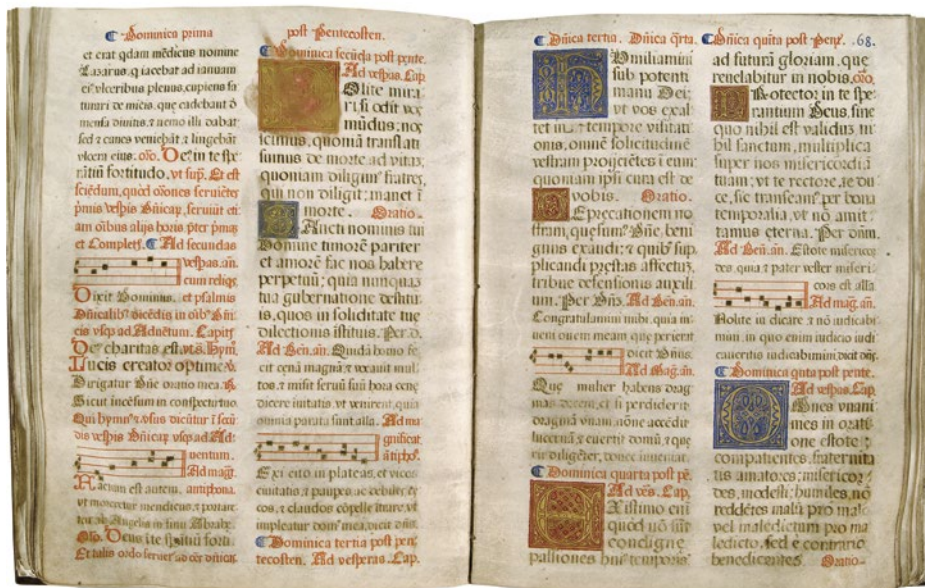 Dominica prima
et erat qdam mēdicus nomine
Lazarus, q iacebat ad ianuam
ei⁹ vlceribus plenus, cupiens sa
turari de micis, que cadebāt ō
mensa diuitis, ⁊ nemo illi dabat
sed ⁊ canes veniebāt, ⁊ lingebāt
vlcera eius. oro. De⁹ in te spe
rātiū fortitudo, vt sup. Et est
sciēdum, quod orones seruiētes
p̄mis vespis Dn̄icaꝝ, seruiūt eti
am oībus alijs horis p̄ter p̄mā
et Complet. Ad secundas
vespas. an.
cum reliqs
Dixit Dominus. et psalmis
Dn̄icalib⁹ dicēdis in oīb⁹ Dn̄i
cis vsqꝫ ad Aduētum. Capit.
De⁹ charitas est. vt s. Hym.
Lucis creator optime. v.
Dirigatur Dn̄e oratio mea. R.
Sicut incēsum in conspectu tuo
Qui hymn⁹ ⁊ v̄sus dicūtur ī secū
dis vespis Dn̄icaꝝ vsqꝫ ad Ad
uentum.
Ad magt.
Factum est autem, antiphona.
vt moreretur mendicus, ⁊ portare
tur ab Angelis in sinū Abrahe.
Oro. Deus ī te spātiū forti.
Et talis ordo seruet⁹ ad oēs dn̄icas.
post Pentecosten.
Dominica secūda post pente.
Ad vespas. Cap.
Olite mira
ri, si odit vos
mūdus: nos
scimus, quoniā translati
sumus de morte ad vitā,
quoniam diligim⁹ fratres,
qui non diligit, manet ī
morte. Oratio.
Sancti nominis tui
Domine timorē pariter
et amorē fac nos habere
perpetuū; quia nunquā
tua gubernatione destitu
is, quos in soliditate tue
dilectionis īstituis. Per d.
Ad Ben. an. Quidā homo fe
cit cenā magnā ⁊ vocauit mul
tos. ⁊ misit seruū suū hora cene
dicere inuitatis, vt venirent, quia
omnia parata sunt alla. Ad ma
gnificat
ātipho.
Exi cito in plateas, et vicos
ciuitatis, ⁊ paupes ac debiles, ce
cos, ⁊ claudos cōpelle ītrare, vt
impleatur dom⁹ mea, dicit dn̄s.
Dominica tertia post pen
tecosten. Ad vesperas. Cap.
Dn̄ica tertia. Dn̄ica q̄rta.
Humiliamini
sub potenti
manu Dei,
vt vos exal
tet in tempore visitati
onis, omnē solicitudinē
vestram proijciētes ī eum
quoniam ipsi cura est de
vobis. Oratio
Deprecationem no
stram, quesum⁹ Dn̄e, beni
gnus exaudi: ⁊ quib⁹ sup
plicandi prestas affectū,
tribue defensionis auxili
um. Per Dn̄s. Ad Ben. an.
Congratulamini mihi, quia in
ueni ouem meam que perierat
dicit Dn̄s.
Ad Mag. an.
Que mulier habens drag
mas decem, et si perdiderit
dragmā vnam, nōne accēdit
lucernā, ⁊ euertit domū, ⁊ que
rit diligēter, donec inueniat.
Dominica quarta post pē.
Ad ves. Cap.
Existimo eni
quod nō sūt
condigne
passiones hui⁹ temporis
Dn̄ica quīta post Pent. 68.
ad futurā gloriam, que
reuelabitur in nobis. oro.
Protector in te spe
rantium Deus, sine
quo nihil est validū, ni
hil sanctum, multiplica
super nos misericordiā
tuam; vt te rectore, te du
ce, sic transeam⁹ per bona
temporalia, vt nō amit
tamus eterna. Per dn̄m.
Ad Ben. an. Estote misericor
des, quia ⁊ pater vester miseri
cors est alla
Ad mag. an.
Nolite iudicare, ⁊ nō iudicabi
mini, in quo enim iudicio iudi
caueritis iudicabimini, dicit dn̄s.
Dominica quīta post pente.
Ad vespas. Cap.
Omnes vnani
mes in orati
one estote;
compatientes, fraternita
tis amatores; misericor
des, modesti; humiles, nō
reddētes malū pro malo
vel maledictum pro ma
ledicto, sed e contrario
benedicentes. Oratio.